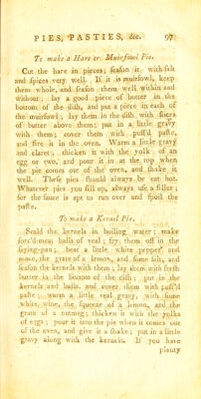 PIES, PASTIES, &c. 97
To make a Hare or Muirfowl Pie.
Cut the hare in pieces; season it with salt
and spices very well. If it is muirfowl, keep
them whole, and season them well within and
without; lay a good piece of butter in the
bottom of the dish, and put a piece in each of
the muirfowl; lay them in the dish with slices
of butter above them; put in a little gravy
with them; cover them with puff'd paste,
and fire it in the oven. Warm a little gravy
and claret; thicken it with the yolk of an
egg or two, and pour it in at the top when
the pie comes out of the oven, and shake it
well. These pies should always be eat hot.
Whatever pies you fill up, always use a filler;
for the sauce is apt to run over and spoil the
paste.
To make a Kernel Pie.
Scald the kernels in boiling water; make
forc'd-meat balls of veal; fry them off in the
frying-pan; beat a little white pepper and
mace, the grate of a lemon, and some salt, and
season the kernels with them; lay them with fresh
butter in the bottom of the dish; put in the
kernels and balls, and cover them with puff'd
paste; warm a little veal gravy, with some
white wine, the squeeze of a lemon, and the
grate of a nutmeg; thicken it with the yolks
of eggs; pour it into the pie when it comes out
of the oven, and give it a shake; put in a little
gravy along with the kernels. If you have
plenty